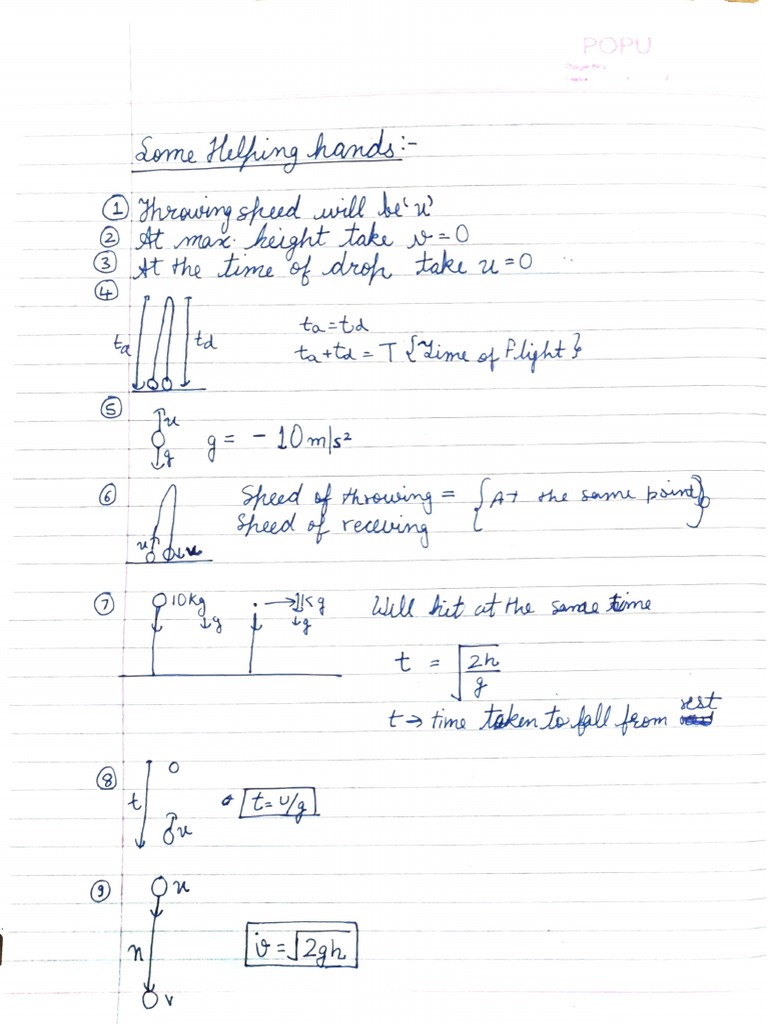 POPU
Some Helping hands:-
① Throwing speed will be 'u'
② At max. height take v = 0
③ At the time of drop take u = 0
④
ta td
ta = td
ta + td = T {Time of Flight}
⑤ u
g
g = - 10 m/s²
⑥ Speed of throwing = {At the same point}
Speed of receving
u u
⑦ 10 Kg 1 Kg Will hit at the same time
g g
t = √2h/g
t → time taken to fall from rest
⑧
t u
t = u/g
⑨ u
h
v = √2gh
v